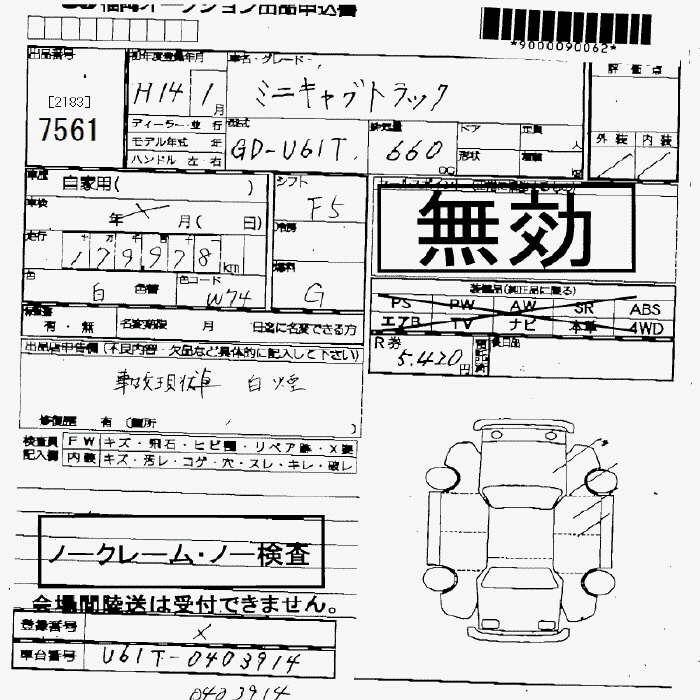 福岡オークション出品申込書
*9000090062*
出品番号
[2183]
7561
初年度登録年月
H14 1月
車名・グレード
ミニキャブトラック
評価点
外装 内装
ディーラー・並 行
モデル年式 年
ハンドル 左・右
型式
GD-U61T
排気量
660
cc
ドア
形状
定員
人
車歴
自家用( )
シフト
F5
車検
年 月( 日)
冷房
走行
十万千百十一
179978 km
燃料
G
色
白 色替
色コード
W74
無効
装備品(純正品に限る)
PS PW AW SR ABS
エアB TV ナビ 本革 4WD
有・無 名変期限 月 日迄に名変できる方
R券
5.420円
後日品
出品店申告欄(不良内容・欠品など具体的に記入して下さい)
事故現状車 白煙
修復歴 有 (箇所 )
検査員記入欄
FW キズ・飛石・ヒビ・リペア跡・X要
内装 キズ・汚レ・コゲ・穴・スレ・キレ・破レ
ノークレーム・ノー検査
会場間陸送は受付できません。
登録番号
X
車台番号 U61T-0403914
0403914